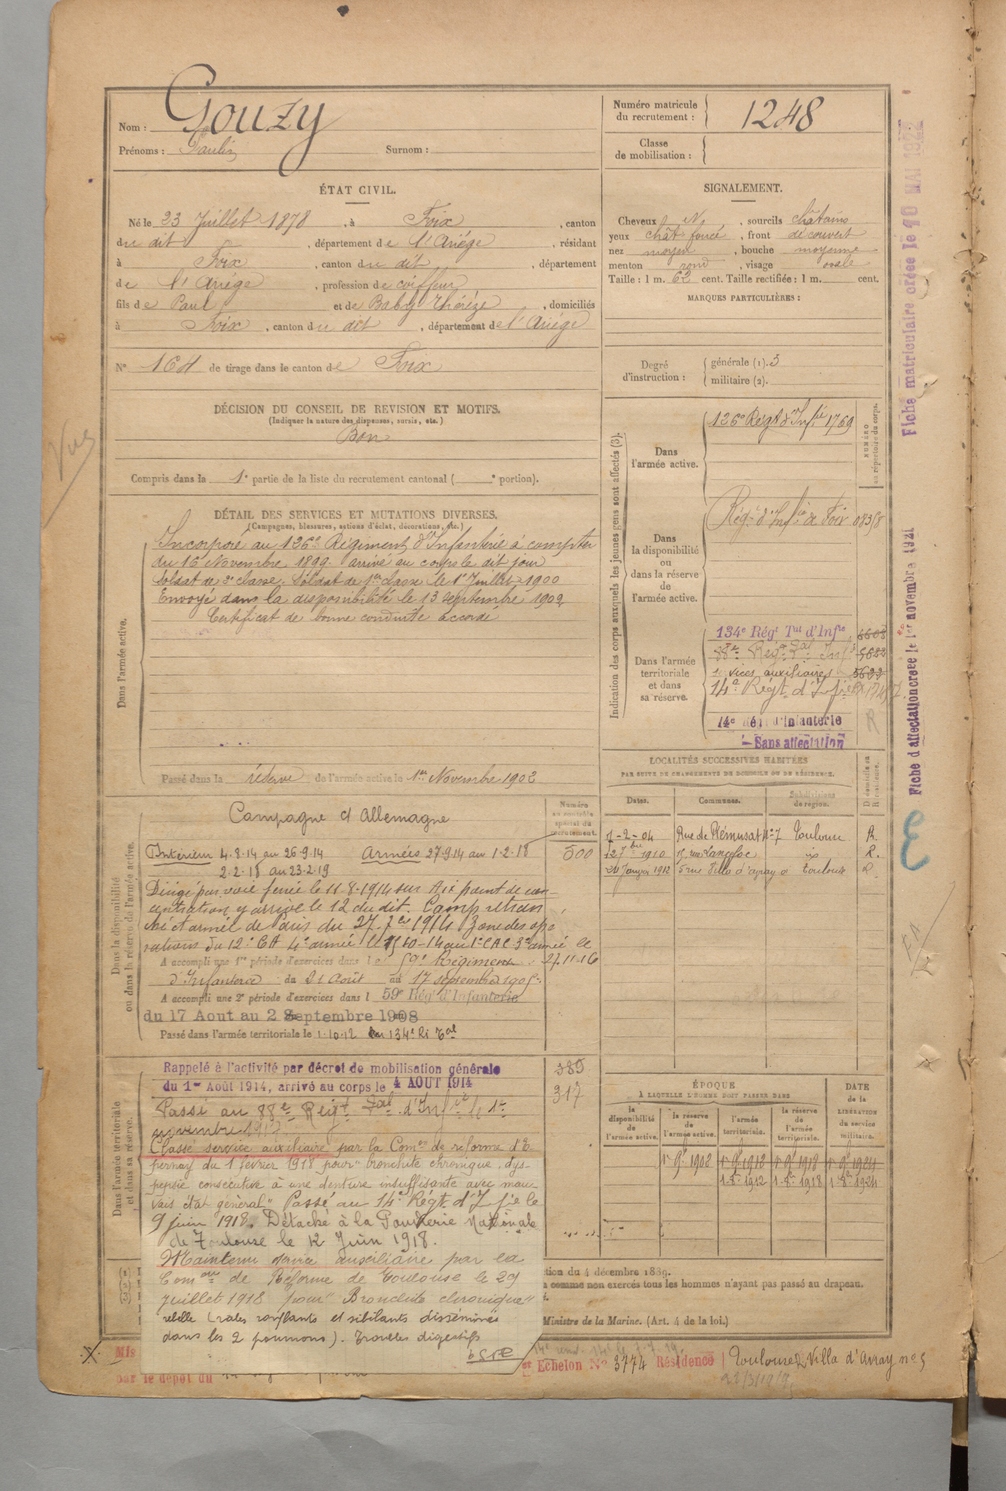 Nom : Gouzy
Prénoms : Paulin Surnom :
Numéro matricule du recrutement : 1248
Classe de mobilisation :
ÉTAT CIVIL.
Né le 23 Juillet 1878, à Foix, canton
du dit, département de l'Ariège, résidant
à Foix, canton du dit, département
de l'Ariège, profession de coiffeur
fils de Paul et de Baby Thérèze, domiciliés
à Foix, canton du dit, département de l'Ariège
N° 164 de tirage dans le canton de Foix
SIGNALEMENT.
Cheveux N., sourcils châtains
yeux chât foncé, front découvert
nez moyen, bouche moyenne
menton rond, visage ovale
Taille : 1 m. 62 cent. Taille rectifiée : 1 m. cent.
MARQUES PARTICULIÈRES :
Degré d'instruction : générale (1). 3
militaire (2).
DÉCISION DU CONSEIL DE REVISION ET MOTIFS.
(Indiquer la nature des dispenses, sursis, etc.)
Bon
Compris dans la 1e partie de la liste du recrutement cantonal ( e portion).
Vus
DÉTAIL DES SERVICES ET MUTATIONS DIVERSES.
(Campagnes, blessures, actions d'éclat, décorations, etc.)
Dans l'armée active.
Incorporé au 126e Régiment d'Infanterie à compter
du 16 Novembre 1899 arrivé au corps le dit jour
Soldat de 2e classe. Soldat de 1re classe le 1er Juillet 1900
Envoyé dans la disponibilité le 13 septembre 1902
Certificat de bonne conduite accordé
Passé dans la réserve de l'armée active le 1er Novembre 1902
Indication des corps auxquels les jeunes gens sont affectés (3).
Dans l'armée active.
126e Régt d'Infie 1769
Dans la disponibilité ou dans la réserve de l'armée active.
Régt d'Infie de Foix
Dans l'armée territoriale et dans sa réserve.
134e Régt Tal d'Infie
14e Régt d'Infie
14e d'Infanterie
Sans affectation
Fiche matriculaire créée le 10 MAI 1922
Fiche d'affectation créée le 1er novembre 1921
LOCALITÉS SUCCESSIVES HABITÉES
PAR SUITE DE CHANGEMENTS DE DOMICILE OU DE RÉSIDENCE.
Dates. Communes. Subdivisions de région.
7-2-04 Rue de Rémusat n°7 Toulouse R.
24 Janvier 1912 5 rue Villa d'Avray Toulouse
Dans la disponibilité ou dans la réserve de l'armée active.
Numéro au contrôle spécial du recrutement.
500
Campagne c/ Allemagne
Intérieur 4.8.14 au 26.9.14 Armées 27.9.14 au 1.2.18
2.2.18 au 23.2.19
Dirigé par voie ferrée le 11.8.1914 sur
centration, y arrive le 12 du dit. Camp retran
ché et armée de Paris du 27.7bre 1914
rations du 12e CA 4e armée
27.11.16
A accompli une 1re période d'exercices dans le 59e Régiment
d'Infanterie du 21 Août au 17 septembre 1905
A accompli une 2e période d'exercices dans l 59e Rég d'Infanterie
du 17 Aout au 2 Septembre 1908
Passé dans l'armée territoriale le 1.10.12 au 134e Ri Tal
Dans l'armée territoriale et dans sa réserve.
Rappelé à l'activité par décret de mobilisation générale
du 1er Août 1914, arrivé au corps le 4 AOUT 1914
Passé au 88e Régt Tal d'Infie le 1er
novembre
317
Classé service auxiliaire par la Comon de réforme d'E
pernay du 1 février 1918 pour "bronchite chronique, dys
pepsie consécutive à une denture insuffisante avec mau
vais état général" Passé au 14e Régt d'Ifie le
9 juin 1918. Détaché à la Poudrerie Nationale
de Toulouse le 12 Juin 1918.
Maintenu service auxiliaire par la
Comon de Réforme de Toulouse le 29
juillet 1918 pour "Bronchite chronique"
rebelle (rales ronflants et sibilants disséminés
dans les 2 poumons). Troubles digestifs
ÉPOQUE
À LAQUELLE L'HOMME DOIT PASSER DANS
la disponibilité de l'armée active.
la réserve de l'armée active.
l'armée territoriale.
la réserve de l'armée territoriale.
DATE DE LA LIBÉRATION du service militaire.
1er 9bre 1902 1er 9bre 1912 1er 9bre 1918 1er 9bre 1924
1-8bre 1912 1-8bre 1918 1-8bre 1924
tion du 4 décembre 1889.
a comme non exercés tous les hommes n'ayant pas passé au drapeau.
Ministre de la Marine. (Art. 4 de la loi.)
Mis
par le dépôt du
Echelon N° 3774 Résidence Toulouse 2 Villa d'Avray n° 5